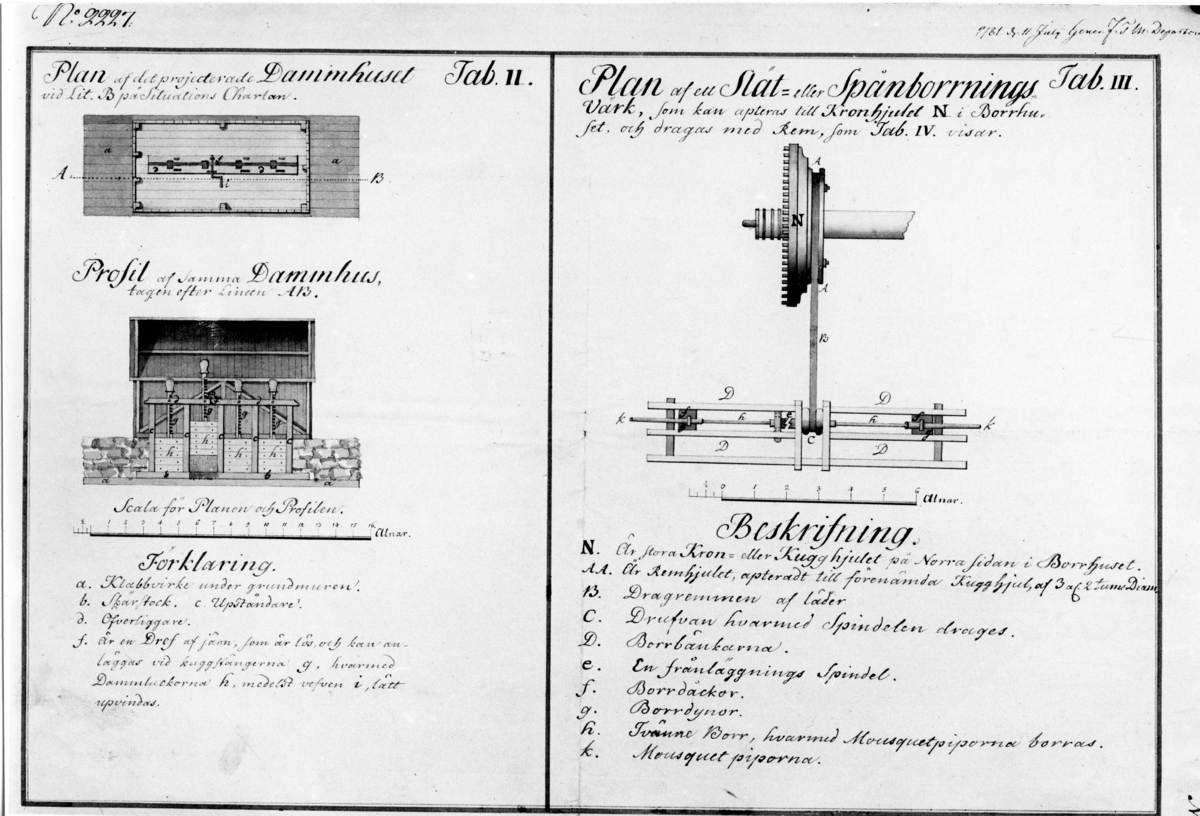 No. 2227.
1781 d. 11 July Gener. F. T. M.
Plan af det projecterade Dammhuset Tab. II.
vid Lit. B på Situations Chartan.
a
a
A
B
i
Profil af samma Dammhus,
tagen efter Lineen AB.
h
h h h
b b
a a
Scala för Planen och Profilen.
1 2 3 4 5 6 7 8 9 10 11 12 13 14 15 16 Alnar.
Förklaring.
a. Klabbvirke under grundmuren.
b. Skärstock. c. Upståndare.
d. Öfverliggare.
f. Är en Dref af järn, som är lös, och kan an-
läggas vid kuggstängerna g, hvarmed
Dammluckorna h, medelst vefven i, lätt
upvindas.
Plan af ett Slät= eller Spånborrnings Tab. III.
Värk, som kan apteras till Kronhjulet N i Borrhu-
set, och dragas med Rem, som Tab. IV. visar.
A
N
A
B
D D
k h e h k
f C g
D D
0 1 2 3 4 5 6 Alnar.
Beskrifning.
N. Är stora Kron= eller Kugghjulet på Norra sidan i Borrhuset.
AA. Är Remhjulet, apteradt till förenämda Kugghjul, af 3 al. 2 tums Diam.
B. Dragremmen af läder
C. Drufvan hvarmed Spindelen drages.
D. Borrbänkarna.
e. En frånläggnings Spindel.
f. Borrdäckor.
g. Borrdynor.
h. Tvänne Borr, hvarmed Mousquetpiporna borras.
k. Mousquet piporna.